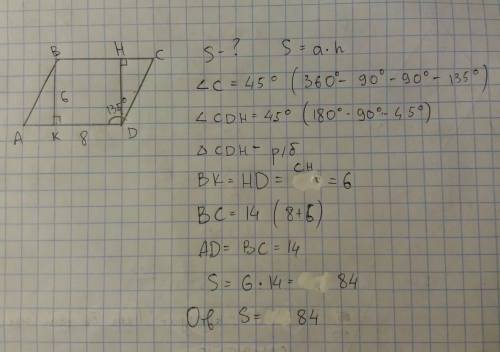 B H C
6
135°
A K 8 D
S - ? S = a · h
∠C = 45° (360° - 90° - 90° - 135°)
∠CDH = 45° (180° - 90° - 45°)
△CDH - р/б
BK = HD = CH = 6
BC = 14 (8+6)
AD = BC = 14
S = 6 · 14 = 84
Отв. S = 84